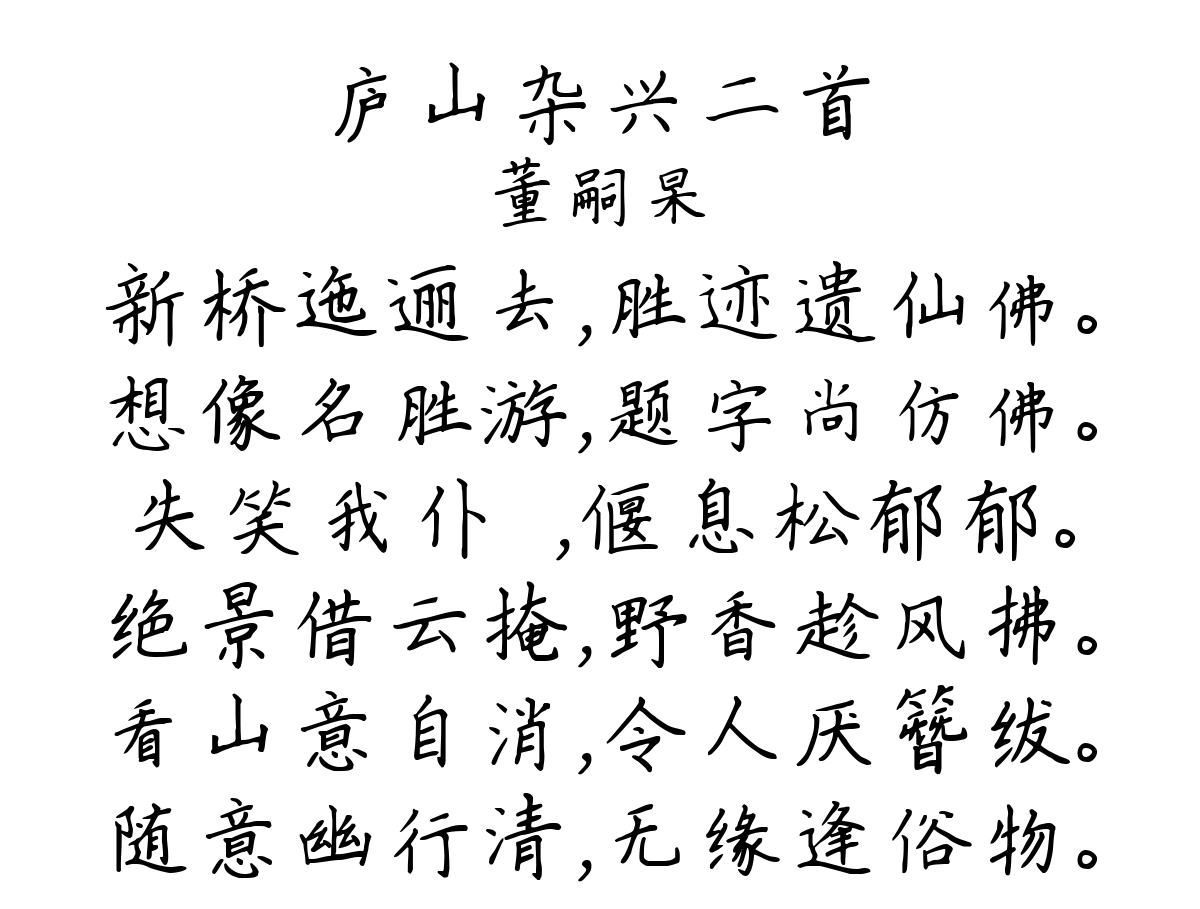 庐山杂兴二首
董嗣杲
新桥迤逦去,胜迹遗仙佛。
想像名胜游,题字尚仿佛。
失笑我仆 ,偃息松郁郁。
绝景借云掩,野香趁风拂。
看山意自消,令人厌簪绂。
随意幽行清,无缘逢俗物。